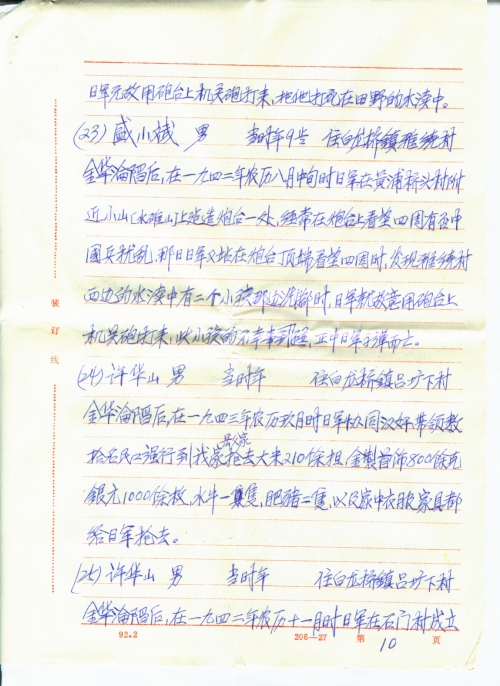 日军无故用炮台上机关炮打来,把他打死在田野的水渎中。
(23) 盛小斌 男 当时年9岁 住白龙桥镇雅统村
金华沦陷后,在一九四三年农历八月中旬时日军在黄浦桥头村附
近小山(水滩山)上造造炮台一处,经常在炮台上看望四周有否中
國兵扰乱,那日日军又站在炮台顶端看望四周时,发现雅统村
西边的水渎中有二个小孩那么泥鳅时,日军就故意用炮台上
机关炮打来,此小孩的不幸事到临,正中日军子弹而亡。
(24) 许华山 男 当时年 住白龙桥镇吕圩下村
金华沦陷后,在一九四三年农历玖月时日军队同汉奸带领数
拾名民工强行到我家抢去大米210余担,金製首饰800余克
岳父家
銀元1000余枚,水牛一隻,肥猪二隻,以及家中衣服家具都
给日军抢去。
(25) 许华山 男 当时年 住白龙桥镇吕圩下村
金华沦陷后,在一九四二年农历十一月时日军在石门村成立
装订线
92.2 206—27 第 10 页